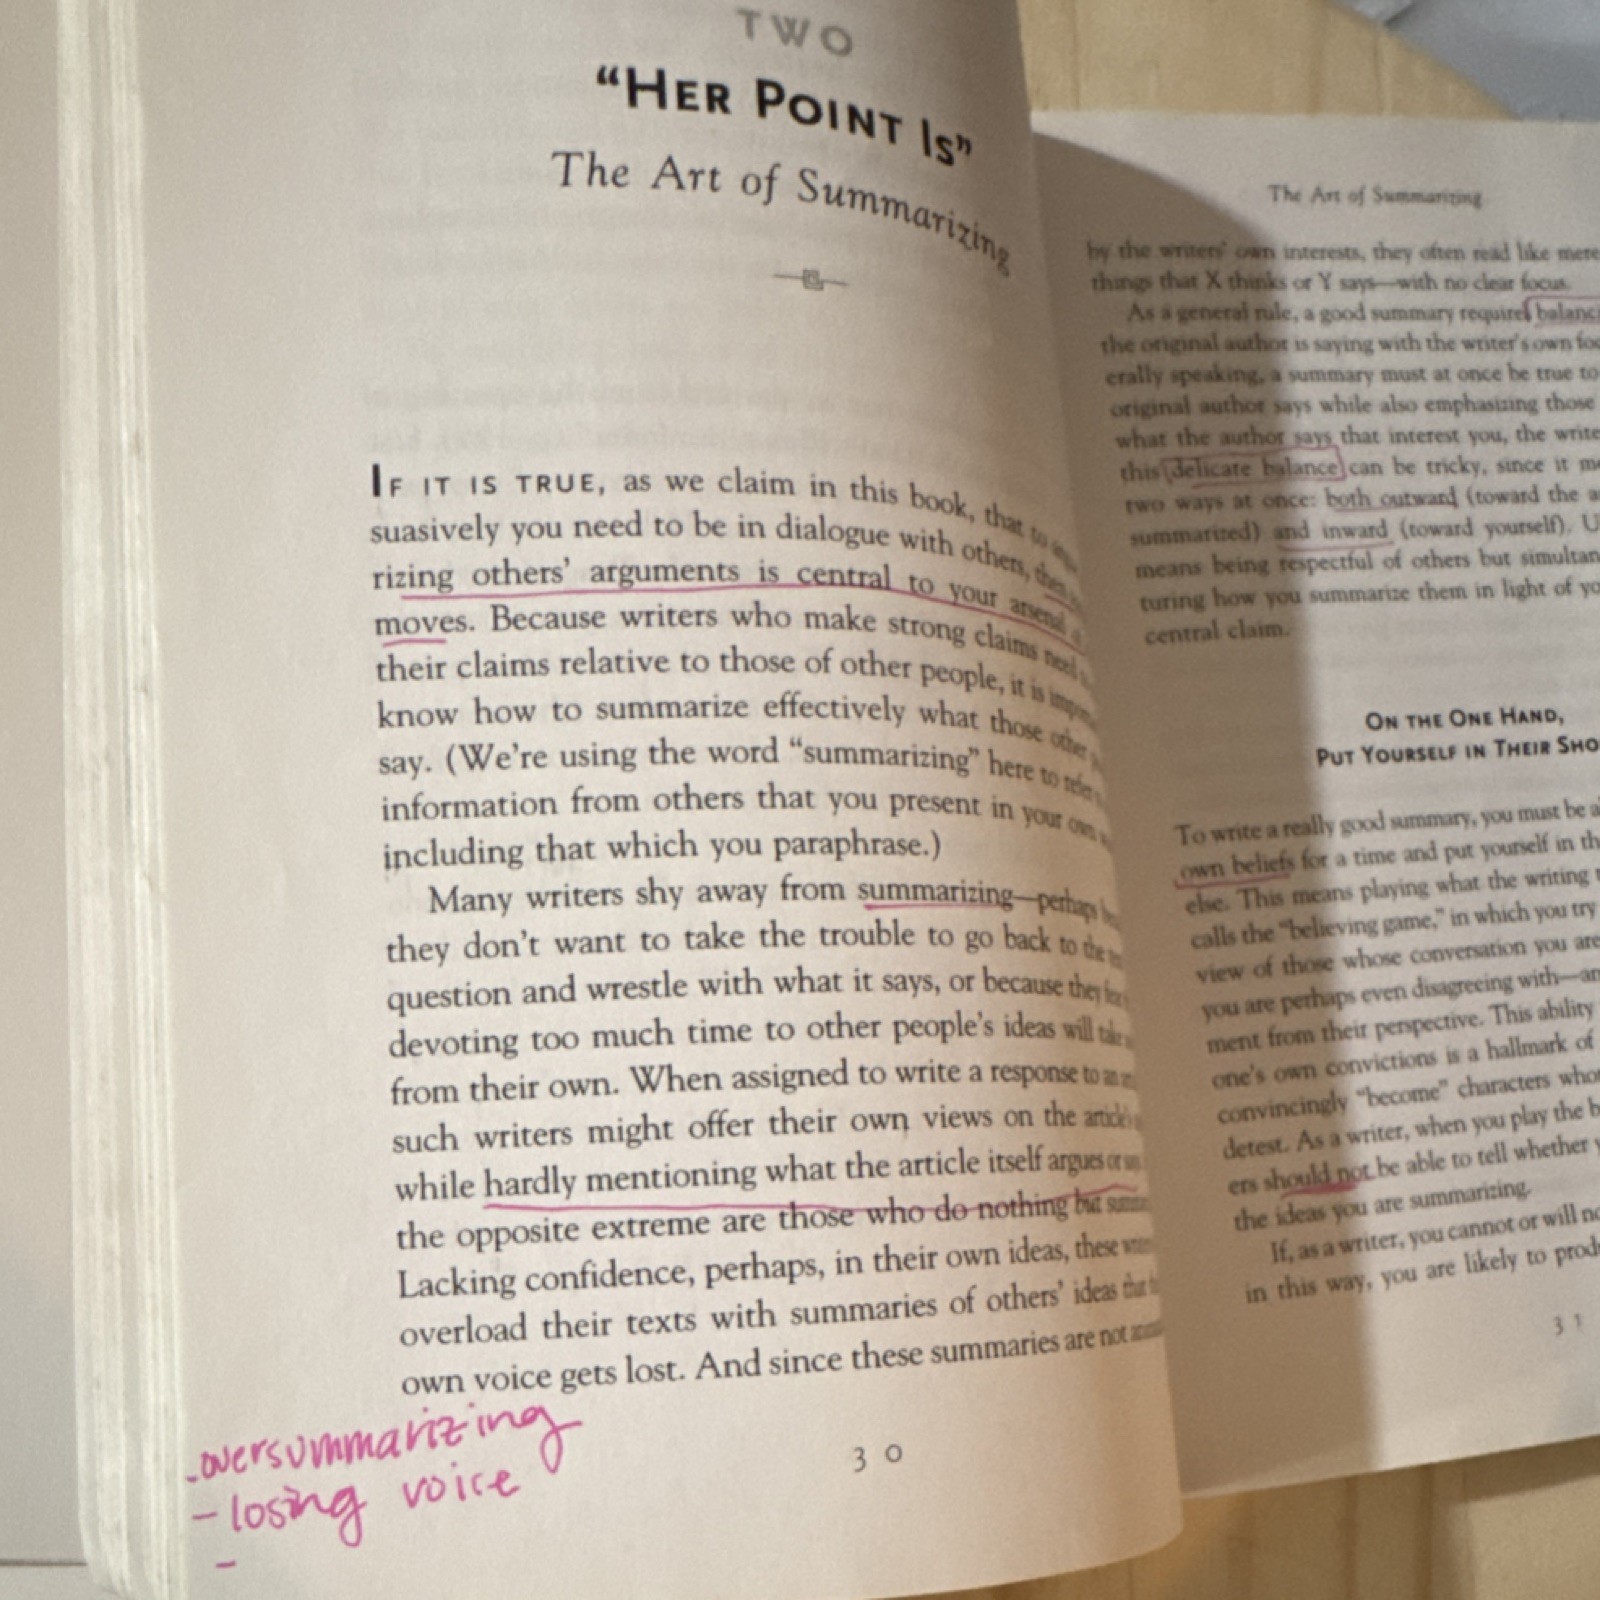 TWO
“HER POINT IS”
The Art of Summarizing
IF IT IS TRUE, as we claim in this book, that to
suasively you need to be in dialogue with others, then
rizing others’ arguments is central to your arsenal of
moves. Because writers who make strong claims need to
their claims relative to those of other people, it is
know how to summarize effectively what those other
say. (We’re using the word “summarizing” here to refer
information from others that you present in your own
including that which you paraphrase.)
Many writers shy away from summarizing—perhaps
they don’t want to take the trouble to go back to the
question and wrestle with what it says, or because they fear
devoting too much time to other people’s ideas will take
from their own. When assigned to write a response to an
such writers might offer their own views on the article’s
while hardly mentioning what the article itself argues or says.
the opposite extreme are those who do nothing but
Lacking confidence, perhaps, in their own ideas, these
overload their texts with summaries of others’ ideas that
own voice gets lost. And since these summaries are not
-oversummarizing
-losing voice
-
30
The Art of Summarizing
by the writers’ own interests, they often read like mere
things that X thinks or Y says—with no clear focus.
As a general rule, a good summary requires balanc
the original author is saying with the writer’s own foc
erally speaking, a summary must at once be true to
original author says while also emphasizing those
what the author says that interest you, the write
this delicate balance can be tricky, since it me
two ways at once: both outward (toward the a
summarized) and inward (toward yourself). U
means being respectful of others but simultan
turing how you summarize them in light of yo
central claim.
ON THE ONE HAND,
PUT YOURSELF IN THEIR SHO
To write a really good summary, you must be a
own beliefs for a time and put yourself in th
else. This means playing what the writing
calls the “believing game,” in which you try
view of those whose conversation you are
you are perhaps even disagreeing with—an
ment from their perspective. This ability
one’s own convictions is a hallmark of
convincingly “become” characters who
detest. As a writer, when you play the b
ers should not be able to tell whether y
the ideas you are summarizing.
If, as a writer, you cannot or will no
in this way, you are likely to prod
31